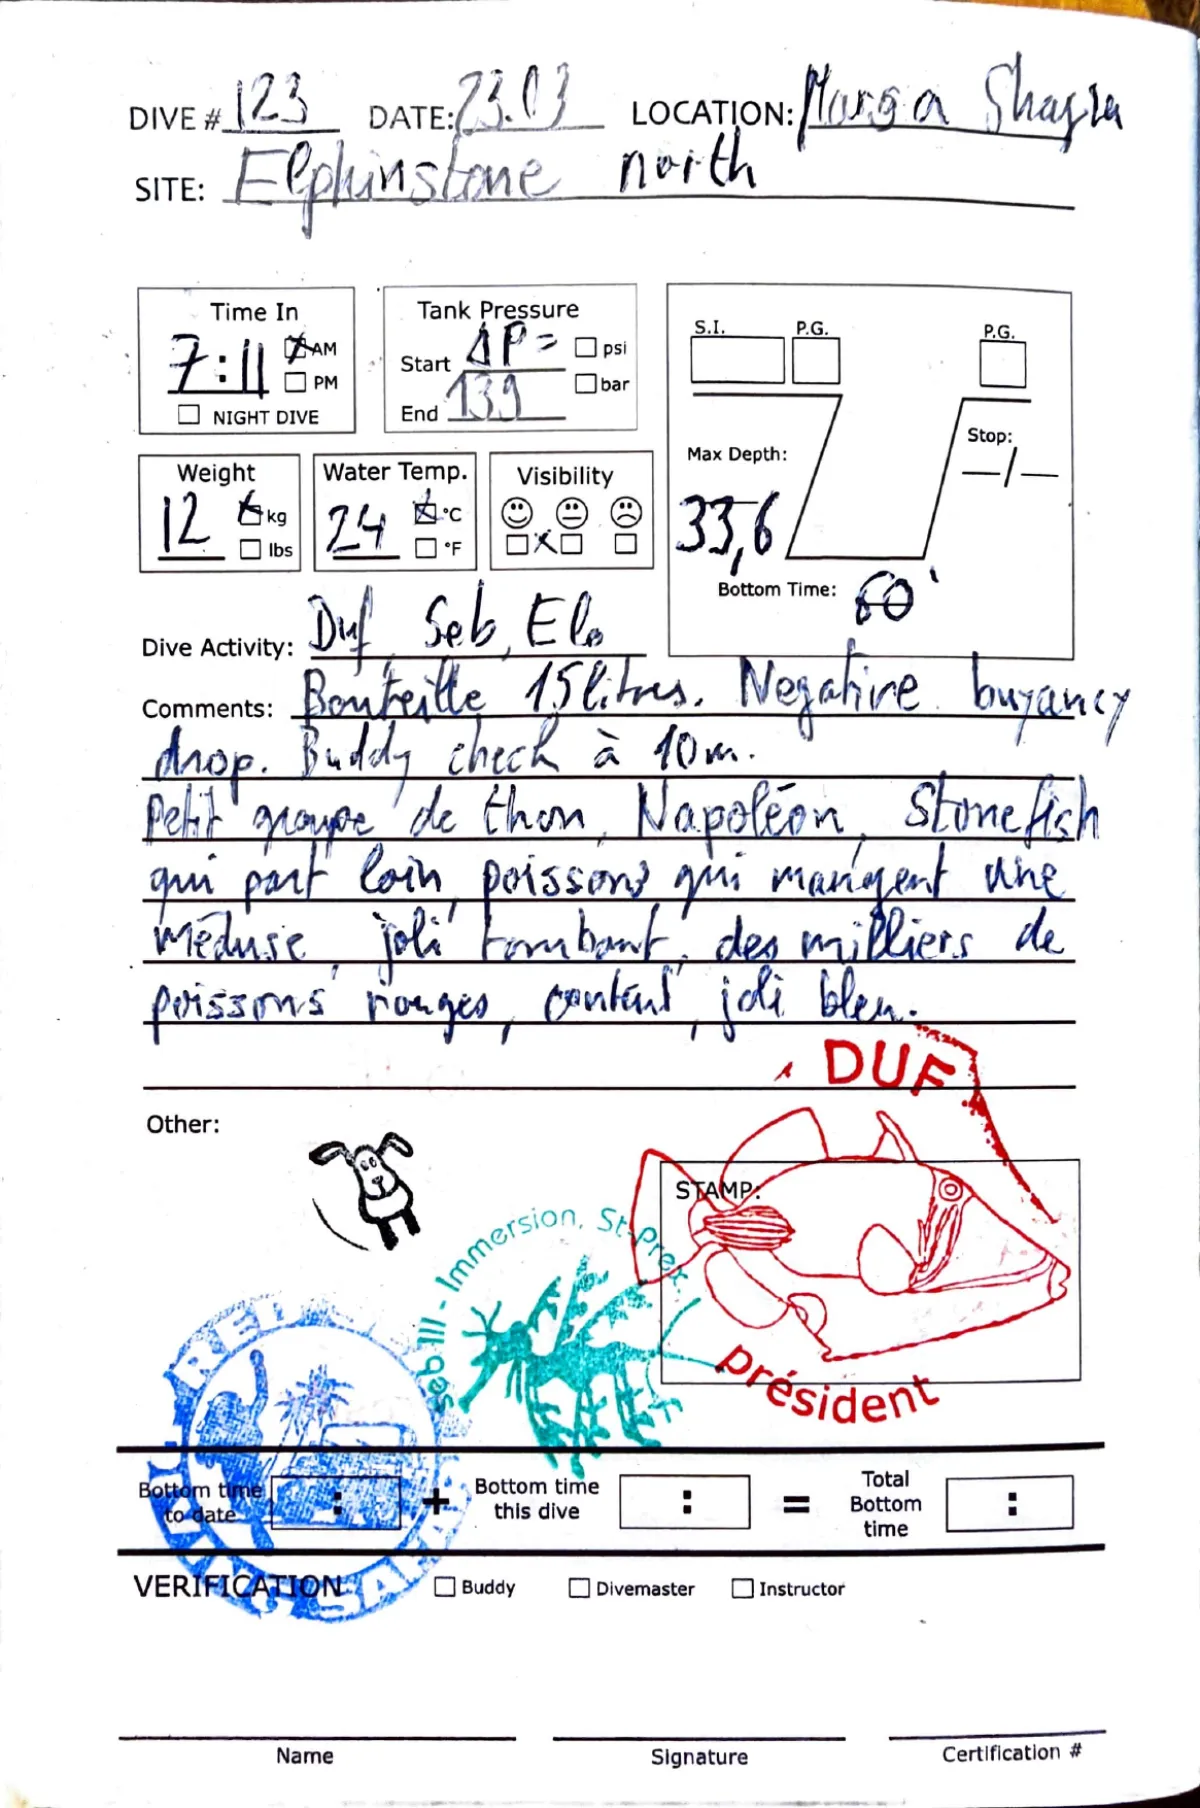 DIVE # 123 DATE: 23.03 LOCATION: Marsa Shagra
SITE: Elphinstone north
Time In
7:11 AM
PM
NIGHT DIVE
Tank Pressure
Start ΔP = psi
bar
End 139
S.I. P.G. P.G.
Weight
12 kg
lbs
Water Temp.
24 °C
°F
Visibility
Max Depth:
33,6
Stop:
Bottom Time: 60'
Dive Activity: Duf, Seb, Elo
Comments: Bouteille 15 litres. Negative buyancy
drop. Buddy check à 10m.
Petit groupe de thon, Napoléon, Stonefish
qui part loin, poissons qui mangent une
méduse, joli tombant, des milliers de
poissons rouges, content, joli bleu.
DUF
Other:
STAMP:
seb III - Immersion, St-Prex.
président
RED
SAFA
Bottom time to date : + Bottom time this dive : = Total Bottom time :
VERIFICATION Buddy Divemaster Instructor
Name Signature Certification #